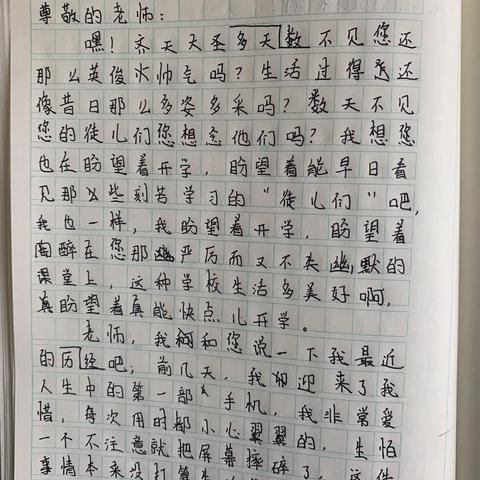 尊敬的老师:
嘿!齐天大圣多天数不见您还
那么英俊帅气吗?生活过得还
像昔日那么多姿多采吗?数天不见
您的徒儿们您想念他们吗?我想您
也在盼望着开学,盼望着能早日看
见那么些刻苦学习的“徒儿们”吧,
我也一样,我盼望着开学,盼望着
陶醉在您那严厉而又不失幽默的
课堂上,这种学校生活多美好啊,
真盼望着真能快点儿开学。
老师,我和您说一下我最近
的历经吧;前几天,我迎来了我
人生中的第一部手机,我非常爱
惜,每次用时都小心翼翼的,生怕
一个不注意就把屏幕摔碎了,这件
事情本来没打算